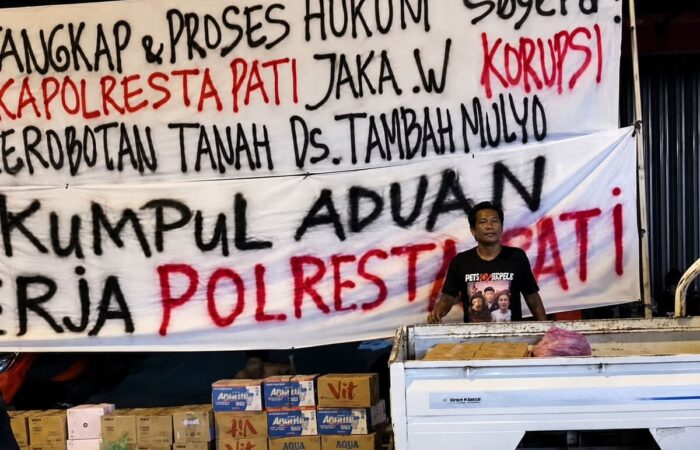 TANGKAP & PROSES HUKUM Segera.
KAPOLRESTA PATI JAKA.W KORUPSI
EROBOTAN TANAH Ds. TAMBAH MULYO
KUMPUL ADUAN
ERJA POLRESTA PATI
PETS
Vit
AQUA
Vit
AQUA
AQUA
Gran Max